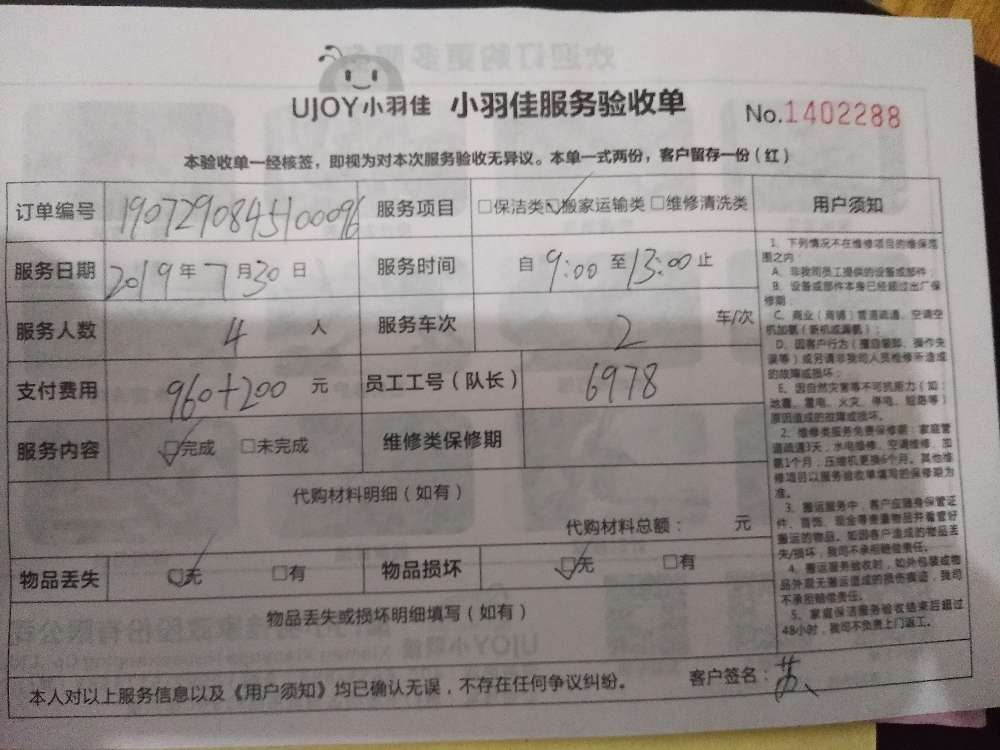 UJOY小羽佳 小羽佳服务验收单 No.1402288
本验收单一经核签，即视为对本次服务验收无异议。本单一式两份，客户留存一份（红）
订单编号 1907290845100096 服务项目 □保洁类 ☑搬家运输类 □维修清洗类
服务日期 2019年7月30日 服务时间 自9:00至13:00止
服务人数 4 人 服务车次 2 车/次
支付费用 960+200 元 员工工号（队长） 6978
服务内容 ☑完成 □未完成 维修类保修期
代购材料明细（如有）
代购材料总额： 元
物品丢失 ☑无 □有 物品损坏 ☑无 □有
物品丢失或损坏明细填写（如有）
本人对以上服务信息以及《用户须知》均已确认无误，不存在任何争议纠纷。 客户签名：
用户须知
1、下列情况不在维修项目的维保范
围之内：
A、非我司员工提供的设备或部件；
B、设备或部件本身已经超过出厂保
修期
C、商业（商铺）管道疏通、空调空
机加氨（新机或漏氨）；
D、因客户行为（擅自装卸、操作失
误等）或另请非我司人员检修所造成
的故障或损坏；
E、因自然灾害等不可抗能力（如：
地震、雷电、火灾、停电、短路等）
原因造成的故障或损坏。
2、维修类服务免费保修期：家庭管
道疏通3天，水电维修、空调维修、加
氨1个月，压缩机更换6个月。其他维
修项目以服务验收单填写的保修期为
准。
3、搬运服务中，客户应随身保管证
件、首饰、现金等贵重物品并看管好
搬运的物品。如因客户造成的物品丢
失/损坏，我司不承担赔偿责任。
4、搬运服务验收时，如外包装或物
品外观无搬运造成的损伤痕迹，我司
不承担赔偿责任。
5、家庭保洁服务验收结束后超过
48小时，我司不负责上门返工。